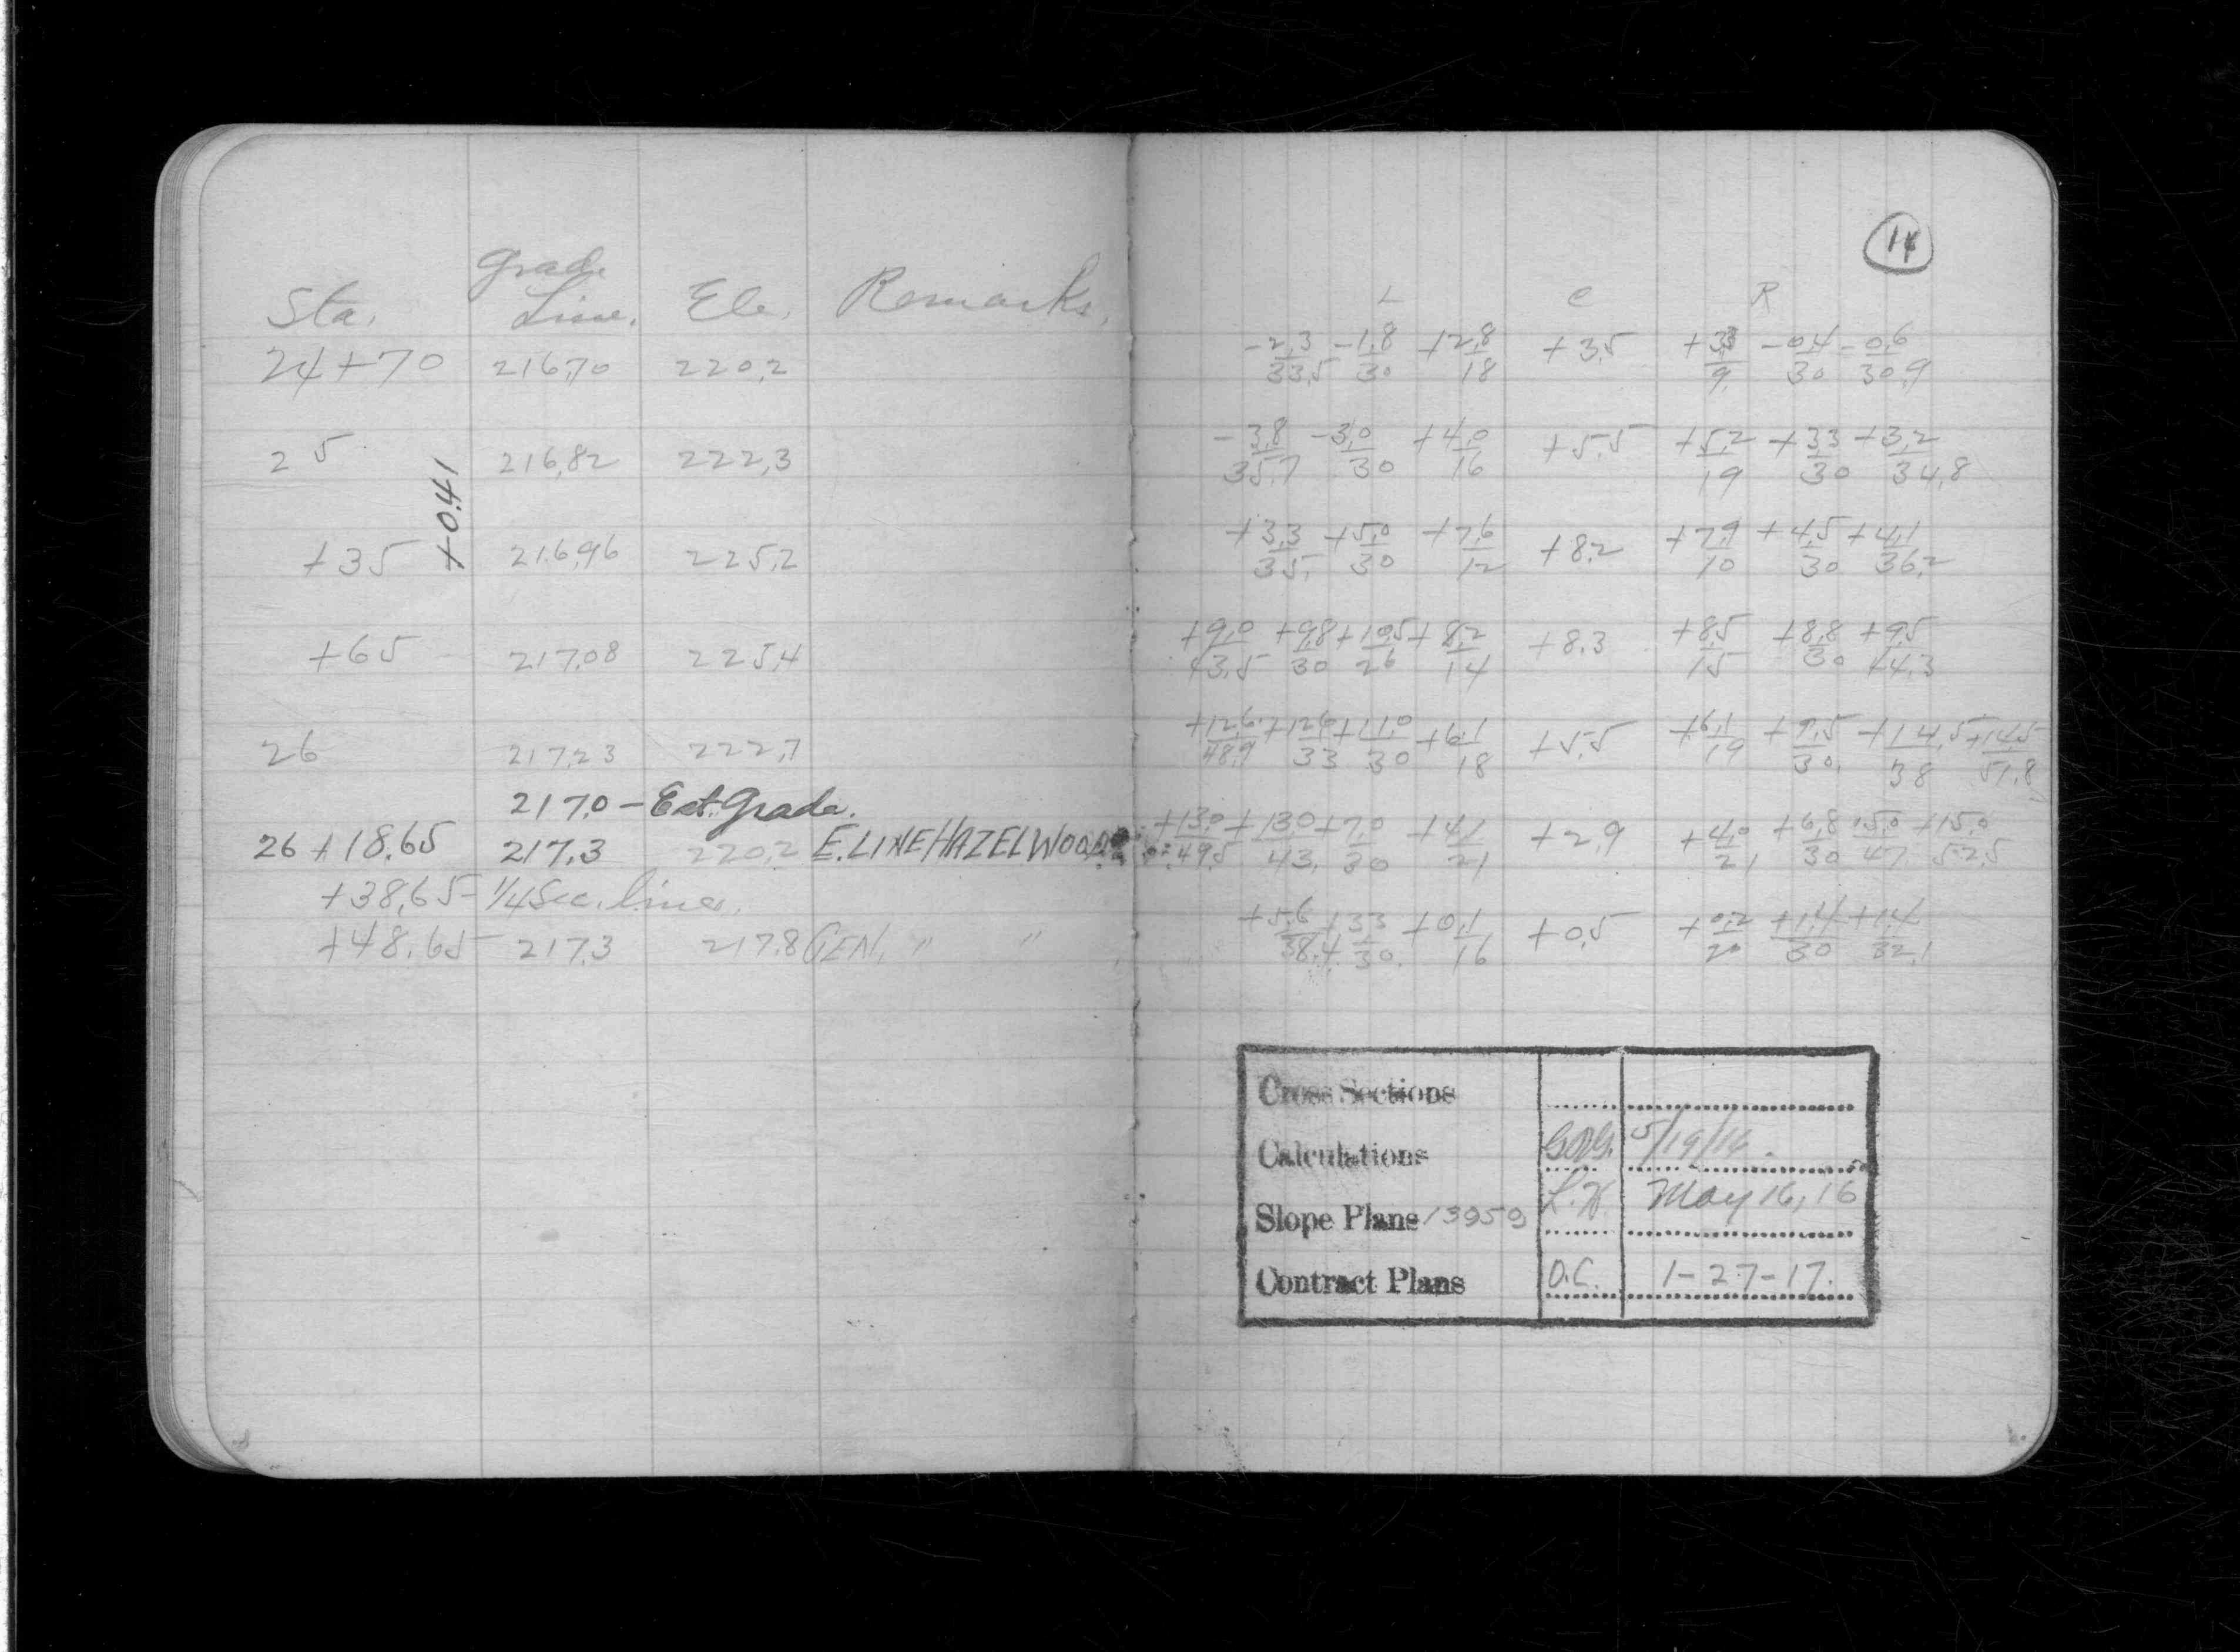 14
Grade
Sta. Line. Ele. Remarks.
L C R
24+70 216.70 220.2 -2.3/33.5 -1.8/30 +2.8/18 +3.5 +3.3/9 -0.4/30 -0.6/30.9
25 216.82 222.3 -3.8/35.7 -3.0/30 +4.0/16 +5.5 +5.2/19 +3.3/30 +3.2/34.8
+0.41
+35 216.96 225.2 +3.3/35. +5.0/30 +7.6/12 +8.2 +7.9/10 +4.5/30 +4.1/36.2
+65 217.08 225.4 +9.0/43.5 +9.8/30 +10.5/26 +8.2/14 +8.3 +8.5/15 +8.8/30 +9.5/44.3
26 217.23 222.7 +12.6/48.9 +12.6/33 +11.0/30 +6.1/18 +5.5 +6.1/19 +9.5/30. +14.5/38 +14.5/51.8
217.0 - Est. Grade.
26+18.65 217.3 220.2 E. LINE HAZELWOOD +13.0/49.5 +13.0/43. +7.0/30 +4.1/21 +2.9 +4.0/21 +6.8/30 15.0/47 +15.0/52.5
+38.65 - 1/4 Sec. line.
+48.65 217.3 217.8 CEN. " " +5.6/38.4 +3.3/30. +0.1/16 +0.5 +0.2/20 +1.4/30 +1.4/32.1
Cross Sections
Calculations 5/19/16.
Slope Plans 13959 L.H. May 16, 16
Contract Plans O.C. 1-27-17.